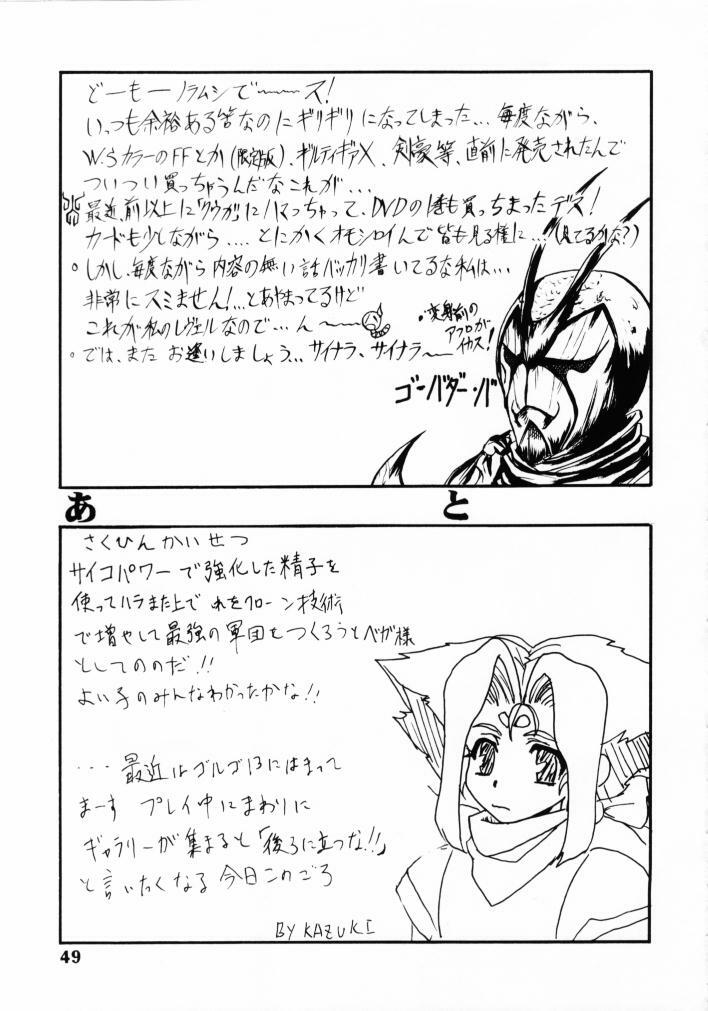 どーもー ノラムシで〜〜ス!
いっつも余裕ある筈なのにギリギリになってしまった... 毎度ながら、
W.SカラーのFFとか(限定版)、ギルティギアX、剣豪等、直前に発売されたんで
ついつい買っちゃうんだなこれが...
最近、前以上に「クウガ」にハマっちゃって、DVDの1巻も買っちまったデス!
カードも少しながら.... とにかくオモシロイんで皆も見る様に...(見てるかな?)
。しかし、毎度ながら内容の無い話バッカリ書いてるな私は...
非常にスミません!...とあやまってるけど
これが私のレヴェルなので...ん〜〜
。では、また お逢いしましょう... サイナラ、サイナラ〜
・変身前の
アフロが
イカス!
ゴ・バダー・バ
あと
さくひんかいせつ
サイコパワーで強化した精子を
使ってハラませた上で それをクローン技術
で増やして最強の軍団をつくろうとベガ様
としてのだ!!
よい子のみんなわかったかな!!
...最近はゴルゴ13にはまって
まーす プレイ中にまわりに
ギャラリーが集まると「後ろに立つな!!」
と言いたくなる今日このごろ
BY KAZUKI
49